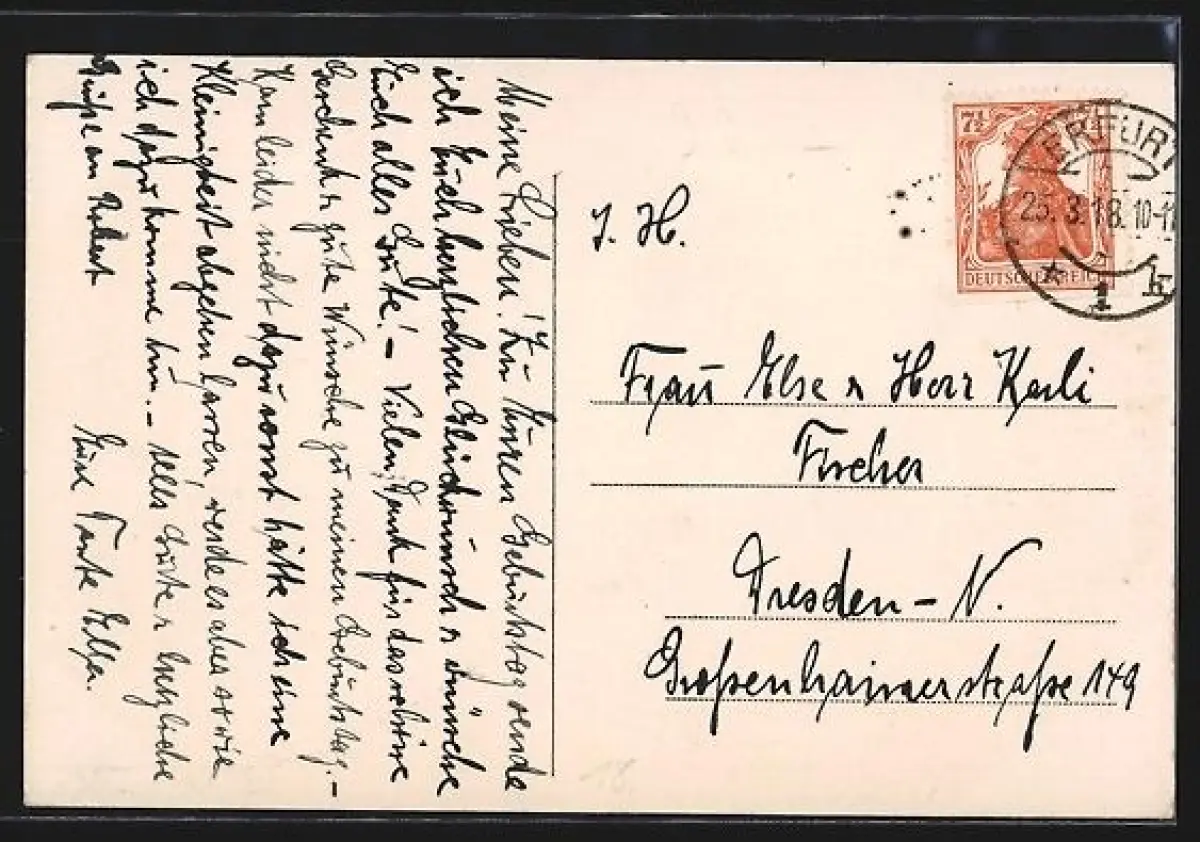 Meine Lieben! Zu Euren Geburtstag sende
ich Euch herzlichen Glückwunsch u wünsche
Euch alles Gute! – Vielen Dank für das schöne
Geschenk u gute Wünsche zu meinem Geburtstag. –
Kam leider nicht dazu sonst hätte ich eine
Kleinigkeit abgehen lassen, sende es aber sowie
ich dazu komme hin. – alles Gute u herzliche
Grüße an Robert
Eure Tante Ella.
7½
DEUTSCHES REICH
ERFURT
25.3.18.10-11
* 1 k
I. H.
Frau Else u Herr Karli
Fischer
Dresden – N.
Großenhainerstraße 149
18